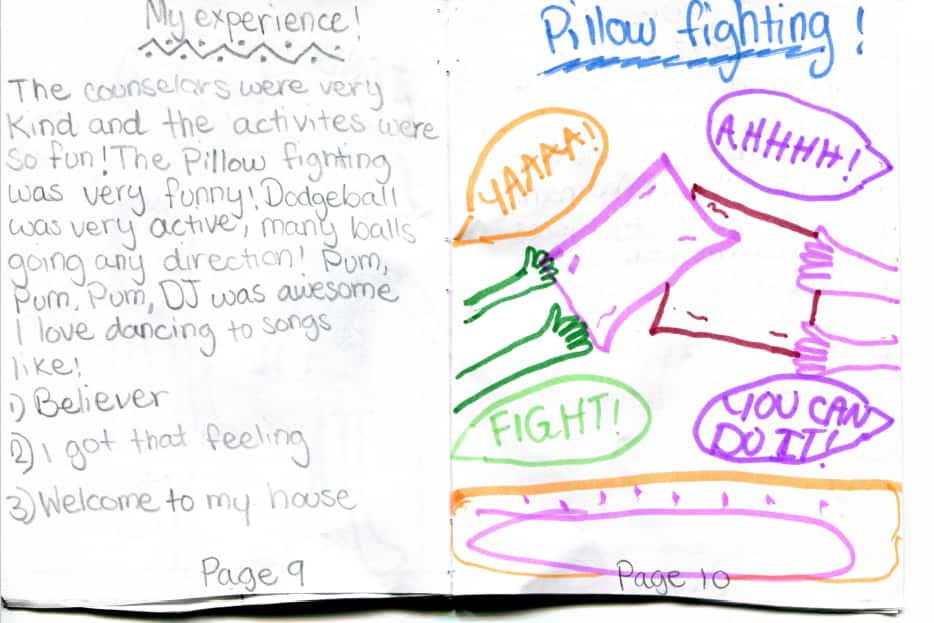 My experience!
The counselors were very
Kind and the activites were
So fun! The Pillow fighting
was very funny! Dodgeball
was very active, many balls
going any direction! Pum,
Pum, Pum, DJ was awesome
I love dancing to songs
like!
1) Believer
2) I got that feeling
3) Welcome to my house
Page 9
Pillow fighting!
YAAAA!
AHHHH!
FIGHT!
YOU CAN
DO IT!
Page 10